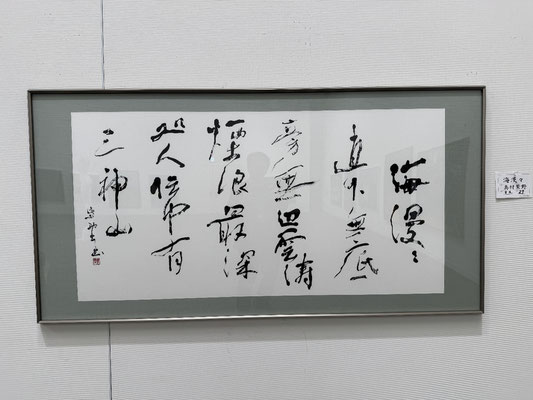 海漫〻
直下無底
旁無邊雲濤
煙浪最深
処人伝中有
三神山
海漫々